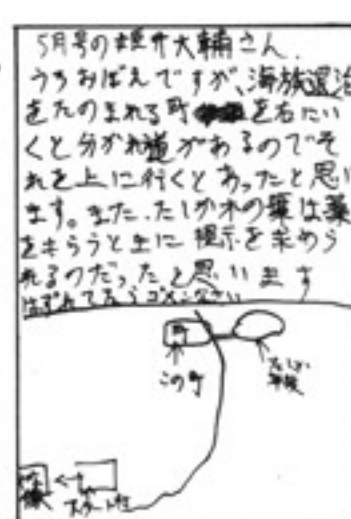 5月号の桜井大輔さん。
うろおぼえですが、海賊退治
をたのまれる町を右にい
くと分かれ道があるのでそ
れを上に行くとあったと思い
ます。また、たしか木の葉は薬
をもらうときに提示を求めら
れるのだったと思います
はずれてたらゴメンなさい
町
この町
スタート地